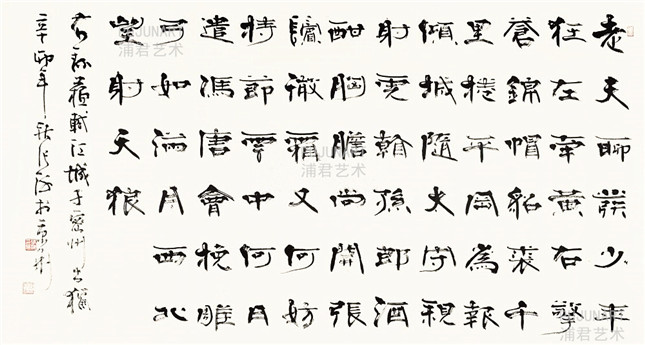 老夫聊發少年
狂左牽黃右擎
蒼錦帽貂裘千
里捲平岡為報
傾城隨太守親
射虎看孫郎酒
酣胸膽尚開張
鬢微霜又何妨
持節雲中何日
遣馮唐會挽雕
弓如滿月西北
望射天狼
右錄蘇軾江城子密州出獵
辛卯年秋
浦君艺术
浦君艺术
浦君艺术
浦君艺术